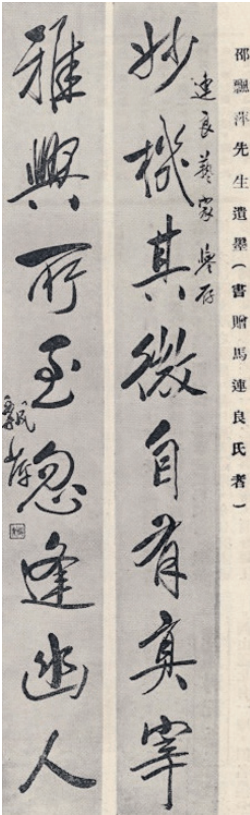 邵飄萍先生遺墨(書贈馬連良氏者)
連良藝家
妙機其微自有真宰
雅興所至忽逢幽人
飄萍